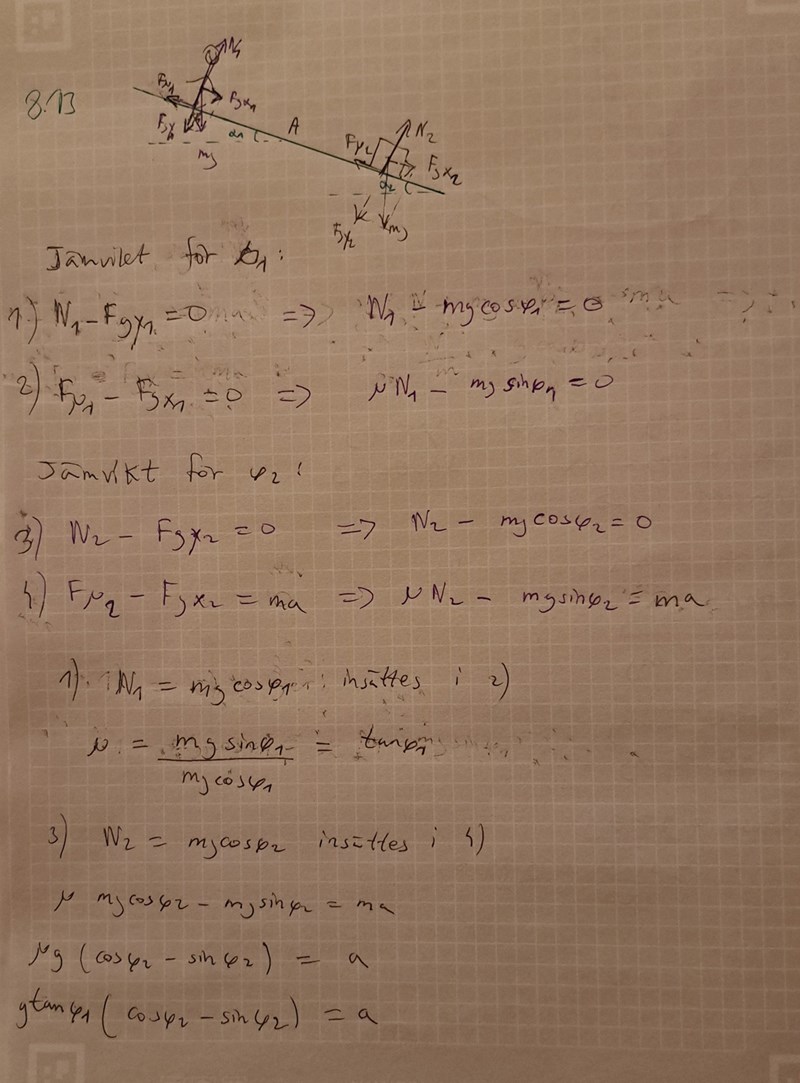 8.13
N₁
Fμ₁
Fgx₁
Fgy₁
mg
α₁
A
Fμ₂
N₂
Fgx₂
α₂
Fgy₂
mg
Jämvikt för φ₁:
1) N₁ - Fgy₁ = 0 => N₁ - mg cosφ₁ = 0
2) Fμ₁ - Fgx₁ = 0 => μN₁ - mg sinφ₁ = 0
Jämvikt för φ₂:
3) N₂ - Fgy₂ = 0 => N₂ - mg cosφ₂ = 0
4) Fμ₂ - Fgx₂ = ma => μN₂ - mg sinφ₂ = ma
1) N₁ = mg cosφ₁ insättes i 2)
μ = mg sinφ₁ / mg cosφ₁ = tanφ₁
3) N₂ = mg cosφ₂ insättes i 4)
μ mg cosφ₂ - mg sinφ₂ = ma
μg (cosφ₂ - sinφ₂) = a
g tanφ₁ (cosφ₂ - sinφ₂) = a